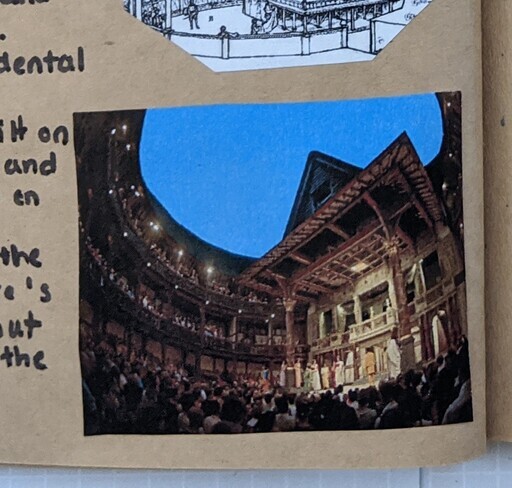 dental
ilt on
and
en
the
re's
out
the